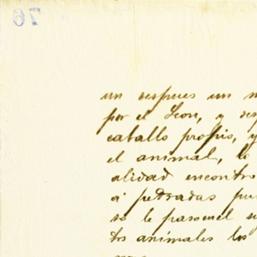 un despues un
por el Leon, y
caballo propio, y
el animal, lo
alidad encontro
á pedradas
se le
tos animales los